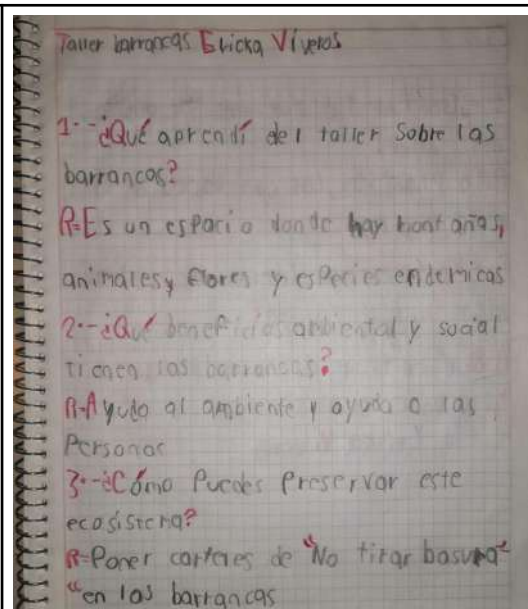 Taller barrancas Ericka Viveros
1.-¿Qué aprendí del taller sobre las
barrancas?
R=Es un espacio donde hay montañas,
animales y flores y especies endemicas
2.-¿Qué beneficios ambiental y social
tienen las barrancas?
R=Ayuda al ambiente y ayuda a las
Personas
3.-¿Cómo Puedes Preservar este
ecosistema?
R=Poner carteles de "No tirar basura"
"en las barrancas